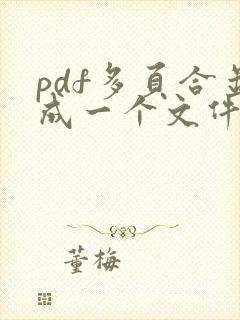 pdf多页合并
成一个文件
董梅